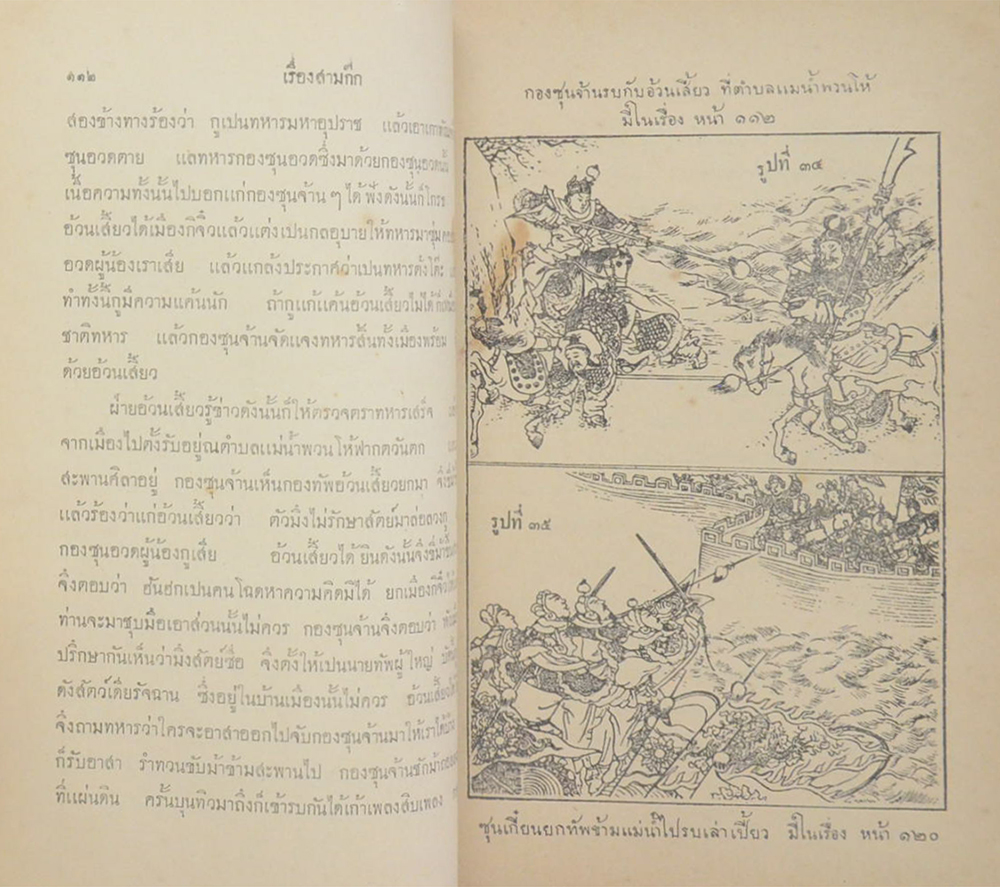 ๑๑๒
เรื่องสามก๊ก
สองข้างทางร้องว่า กูเปนทหารมหาอุปราช แล้วเอาเกาทัณฑ์
ซุนอวดตาย แลทหารกองซุนอวดซึ่งมาด้วยกองซุนอวดนั้น
เนื้อความทั้งนั้นไปบอกแก่กองซุนจ้าน ๆ ได้ฟังดังนั้นก็โกรธ
อ้วนเสี้ยวได้เมืองกิจิ๋วแล้วแต่งเปนกลอุบายให้ทหารมาซุ่ม
อวดผู้น้องเราเสีย แล้วแกล้งประกาศว่าเปนทหารตั๋งโต๊ะ
ทำทั้งนี้กูมีความแค้นนัก ถ้ากูแก้แค้นอ้วนเสี้ยวไม่ได้
ชาติทหาร แล้วกองซุนจ้านจัดแจงทหารสิ้นทั้งเมืองพร้อม
ด้วยอ้วนเสี้ยว
ฝ่ายอ้วนเสี้ยวรู้ข่าวดังนั้นก็ให้ตรวจตราทหารเสร็จ
จากเมืองไปตั้งรับอยู่ณตำบลแม่น้ำพวนโห้ฟากตวันตก
สะพานศิลาอยู่ กองซุนจ้านเห็นกองทัพอ้วนเสี้ยวยกมา
แล้วร้องว่าแก่อ้วนเสี้ยวว่า ตัวมึงไม่รักษาสัตย์มาล่อลวงกู
กองซุนอวดผู้น้องกูเสีย อ้วนเสี้ยวได้ยินดังนั้นจึงขี่ม้า
จึงตอบว่า ฮันฮกเปนคนโฉดหาความคิดมิได้ ยกเมืองกิจิ๋ว
ท่านจะมาชุบมือเอาส่วนนั้นไม่ควร กองซุนจ้านจึงตอบว่า
ปรึกษากันเห็นว่ามึงสัตย์ซื่อ จึงตั้งให้เปนนายทัพผู้ใหญ่
ดังสัตว์เดียรัจฉาน ซึ่งอยู่ในบ้านเมืองนั้นไม่ควร อ้วนเสี้ยว
จึงถามทหารว่าใครจะอาสาออกไปจับกองซุนจ้านมาให้เราได้
ก็รับอาสา รำทวนขับม้าข้ามสะพานไป กองซุนจ้านชักม้า
ที่แผ่นดิน ครั้นบุนทิวมาถึงก็เข้ารบกันได้เก้าเพลงสิบเพลง
กองซุนจ้านรบกับอ้วนเสี้ยว ที่ตำบลแม่น้ำพวนโห้
มีในเรื่อง หน้า ๑๑๒
รูปที่ ๓๔
รูปที่ ๓๕
ซุนเกี๋ยนยกทัพข้ามแม่น้ำไปรบเล่าเปี้ยว มีในเรื่อง หน้า ๑๒๐